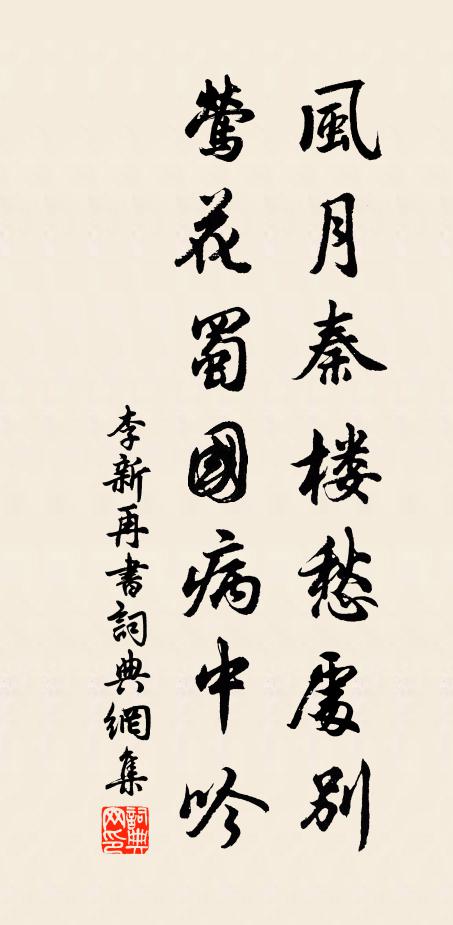 風月秦楼愁處別
鶯花蜀國病中吟
李新再書詞典網集
詞典网印